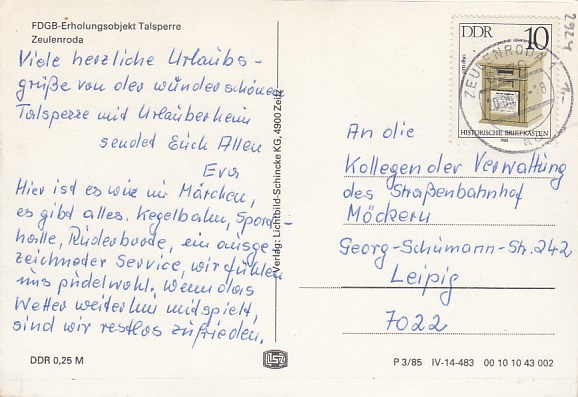 FDGB-Erholungsobjekt Talsperre
Zeulenroda
Viele herzliche Urlaubs-
grüße von der wunderschönen
Talsperre mit Urlauberheim
sendet Euch Allen
Eva
Hier ist es wie im Märchen,
es gibt alles. Kegelbahn, Sport-
halle, Ruderboode, ein ausge-
zeichneter Service, wir fühlen
uns pudelwohl. Wenn das
Wetter weiterhin mitspielt,
sind wir restlos zufrieden.
DDR 0,25 M
Verlag: Lichtbild-Schincke KG, 4900 Zeitz
DDR 10
HISTORISCHE BRIEFKASTEN
1985
ZEULENRODA 1
2924
1,-
An die
Kollegen der Verwaltung
des Straßenbahnhof
Möckern
Georg-Schumann-Str. 242
Leipig
7022
P 3/85 IV-14-483 00 10 10 43 002